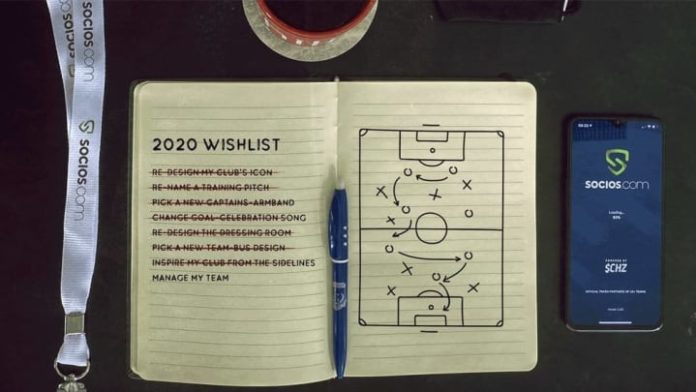 SOCIOS.com
SOCIOS.com
2020 WISHLIST
RE-DESIGN MY CLUB'S ICON
RE-NAME A TRAINING PITCH
PICK A NEW CAPTAINS-ARMBAND
CHANGE GOAL-CELEBRATION SONG
RE-DESIGN THE DRESSING ROOM
PICK A NEW TEAM-BUS DESIGN
INSPIRE MY CLUB FROM THE SIDELINES
MANAGE MY TEAM
SOCIOS.com
Loading...
POWERED BY
$CHZ